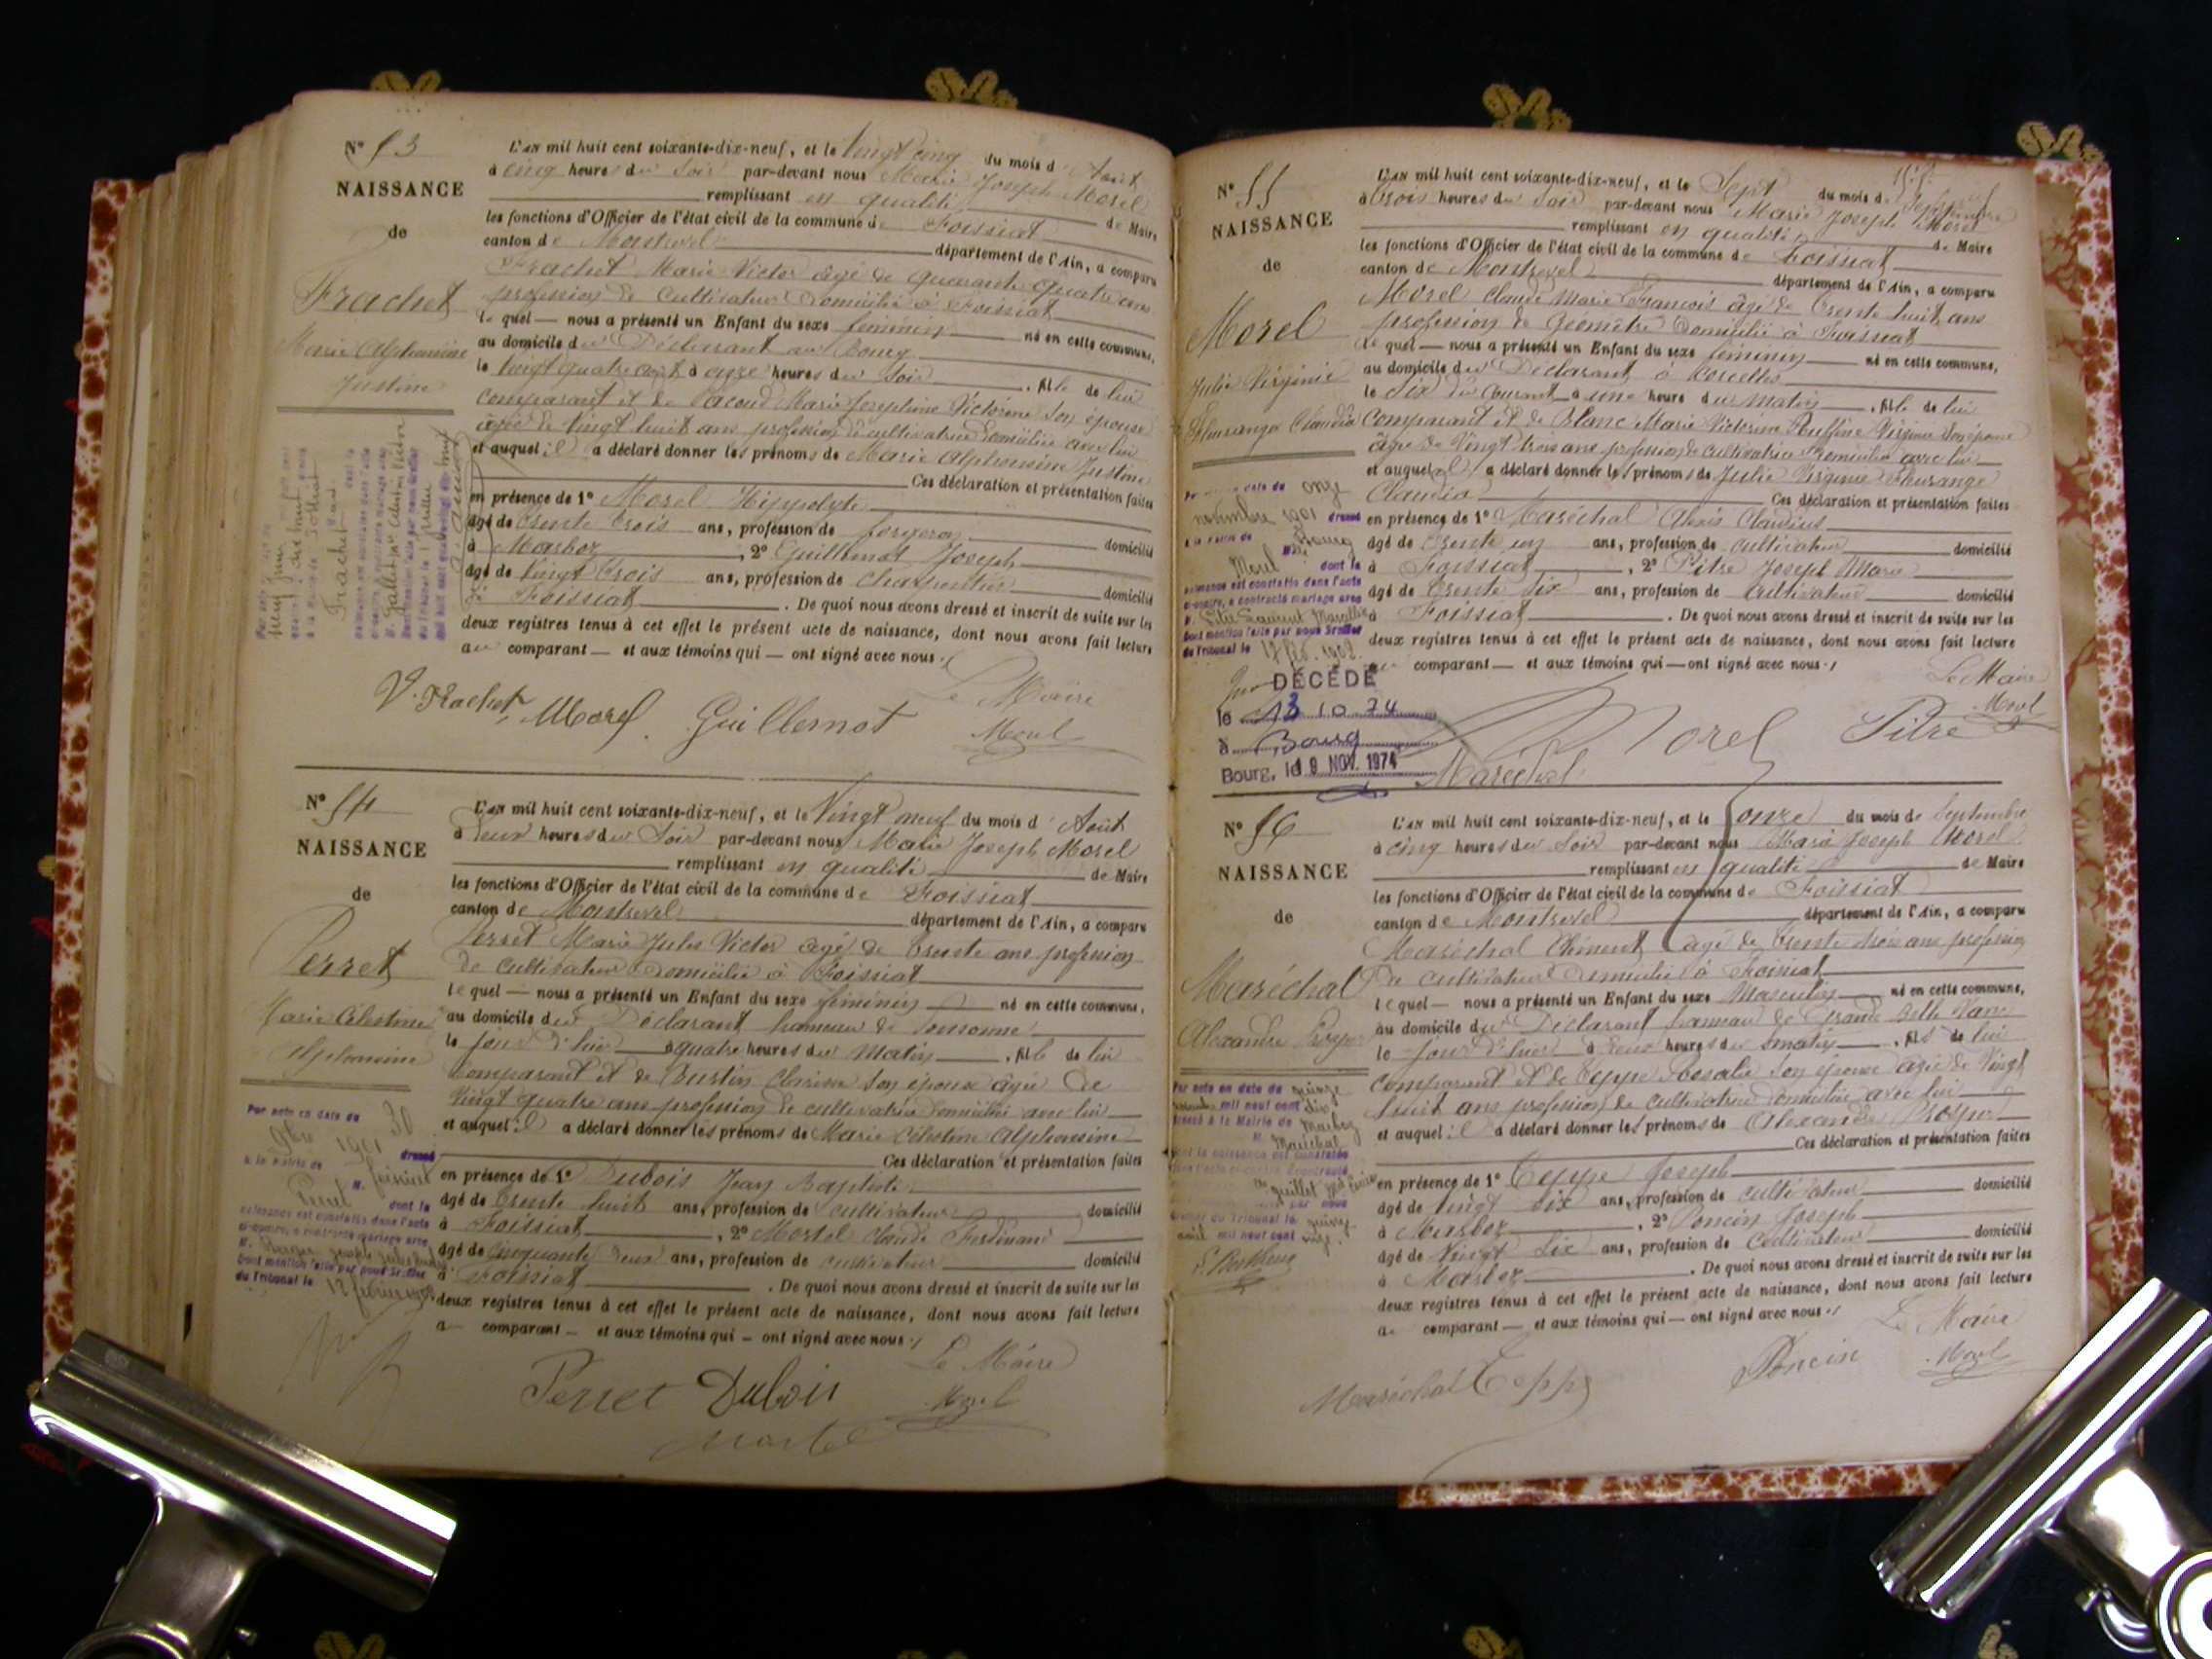 N° 53
NAISSANCE
de
Frachet
Marie Alphonsine
Justine
L'an mil huit cent soixante-dix-neuf, et le vingt cinq du mois d'Août
à cinq heures du soir par-devant nous Marie Joseph Morel
remplissant en qualité de Maire
les fonctions d'Officier de l'état civil de la commune de Foissiat
canton de Montrevel département de l'Ain, a comparu
Frachet Marie Victor âgé de quarante quatre ans
profession de cultivateur domicilié à Foissiat
lequel — nous a présenté un Enfant du sexe féminin né en cette commune,
au domicile du Déclarant au Bourg
le vingt quatre août à onze heures du soir, fille de lui
comparant et de Pacoud Marie Joséphine Victorine son épouse
âgée de vingt huit ans profession de cultivatrice domiciliée avec lui
et auquel il a déclaré donner les prénoms de Marie Alphonsine Justine
Ces déclaration et présentation faites
en présence de 1° Morel Hippolyte
âgé de trente trois ans, profession de forgeron domicilié
à Marboz, 2° Guillemot Joseph
âgé de vingt trois ans, profession de charpentier domicilié
à Foissiat. De quoi nous avons dressé et inscrit de suite sur les
deux registres tenus à cet effet le présent acte de naissance, dont nous avons fait lecture
au comparant — et aux témoins qui — ont signé avec nous
Le Maire
V. Frachet Morel Guillemot Morel
N° 54
NAISSANCE
de
Perret
Marie Célestine
Alphonsine
Par acte en date du 30
9bre 1901 dressé
à la mairie de
dont la
naissance est constatée dans l'acte
ci-contre, a contracté mariage avec
Dont mention faite par nous Greffier
du Tribunal le 12 février
L'an mil huit cent soixante-dix-neuf, et le vingt neuf du mois d'Août
à deux heures du soir par-devant nous Marie Joseph Morel
remplissant en qualité de Maire
les fonctions d'Officier de l'état civil de la commune de Foissiat
canton de Montrevel département de l'Ain, a comparu
Perret Marie Jules Victor âgé de trente ans profession
de cultivateur domicilié à Foissiat
lequel — nous a présenté un Enfant du sexe féminin né en cette commune,
au domicile du Déclarant hameau de
le jour d'hier à quatre heures du matin, fille de lui
comparant et de Burtin Clarisse son épouse âgée de
vingt quatre ans profession de cultivatrice domiciliée avec lui
et auquel il a déclaré donner les prénoms de Marie Célestine Alphonsine
Ces déclaration et présentation faites
en présence de 1° Dubois Jean Baptiste
âgé de trente huit ans, profession de cultivateur domicilié
à Foissiat, 2° Mortel Claude Ferdinand
âgé de cinquante deux ans, profession de cultivateur domicilié
à Foissiat. De quoi nous avons dressé et inscrit de suite sur les
deux registres tenus à cet effet le présent acte de naissance, dont nous avons fait lecture
a comparant — et aux témoins qui — ont signé avec nous
Le Maire
Perret Dubois Morel
N° 55
NAISSANCE
de
Morel
Julie Virginie
Claudia
Par acte en date du onze
novembre 1901 dressé
à la mairie de Bourg
Morel dont la
naissance est constatée dans l'acte
ci-contre, a contracté mariage avec
Dont mention faite par nous Greffier
du Tribunal le 12 fév. 1902
DÉCÉDÉ
le 13 10 74
à Bourg
Bourg, le 19 NOV. 1974
L'an mil huit cent soixante-dix-neuf, et le sept du mois de Septembre
à trois heures du soir par-devant nous Marie Joseph Morel
remplissant en qualité de Maire
les fonctions d'Officier de l'état civil de la commune de Foissiat
canton de Montrevel département de l'Ain, a comparu
Morel Claude Marie François âgé de trente huit ans
profession de Géomètre domicilié à Foissiat
lequel — nous a présenté un Enfant du sexe féminin né en cette commune,
au domicile du Déclarant à
le six du courant à une heure du matin, fille de lui
comparant et de Blanc Marie Victorine Virginie son épouse
âgée de vingt trois ans profession de cultivatrice domiciliée avec lui
et auquel il a déclaré donner les prénoms de Julie Virginie
Claudia Ces déclaration et présentation faites
en présence de 1° Maréchal Alexis Claudius
âgé de trente un ans, profession de cultivateur domicilié
à Foissiat, 2° Pitre Joseph Marie
âgé de trente six ans, profession de cultivateur domicilié
à Foissiat. De quoi nous avons dressé et inscrit de suite sur les
deux registres tenus à cet effet le présent acte de naissance, dont nous avons fait lecture
au comparant — et aux témoins qui — ont signé avec nous
Le Maire
Maréchal Morel Pitre Morel
N° 56
NAISSANCE
de
Maréchal
Alexandre Prosper
Par acte en date du quinze
mil neuf cent dix
dressé à la Mairie de Marboz
Maréchal
L'an mil huit cent soixante-dix-neuf, et le onze du mois de Septembre
à cinq heures du soir par-devant nous Marie Joseph Morel
remplissant en qualité de Maire
les fonctions d'Officier de l'état civil de la commune de Foissiat
canton de Montrevel département de l'Ain, a comparu
Maréchal Clément âgé de trente trois ans profession
de cultivateur domicilié à Foissiat
lequel — nous a présenté un Enfant du sexe masculin né en cette commune,
au domicile du Déclarant hameau de Grand
le jour d'hier à deux heures du matin, fils de lui
comparant et de Teppe Rosalie son épouse âgée de vingt
huit ans profession de cultivatrice domiciliée avec lui
et auquel il a déclaré donner les prénoms de Alexandre Prosper
Ces déclaration et présentation faites
en présence de 1° Teppe Joseph
âgé de vingt six ans, profession de cultivateur domicilié
à Marboz, 2° Poncin Joseph
âgé de vingt six ans, profession de cultivateur domicilié
à Marboz. De quoi nous avons dressé et inscrit de suite sur les
deux registres tenus à cet effet le présent acte de naissance, dont nous avons fait lecture
au comparant — et aux témoins qui — ont signé avec nous
Le Maire
Maréchal Teppe Poncin Morel